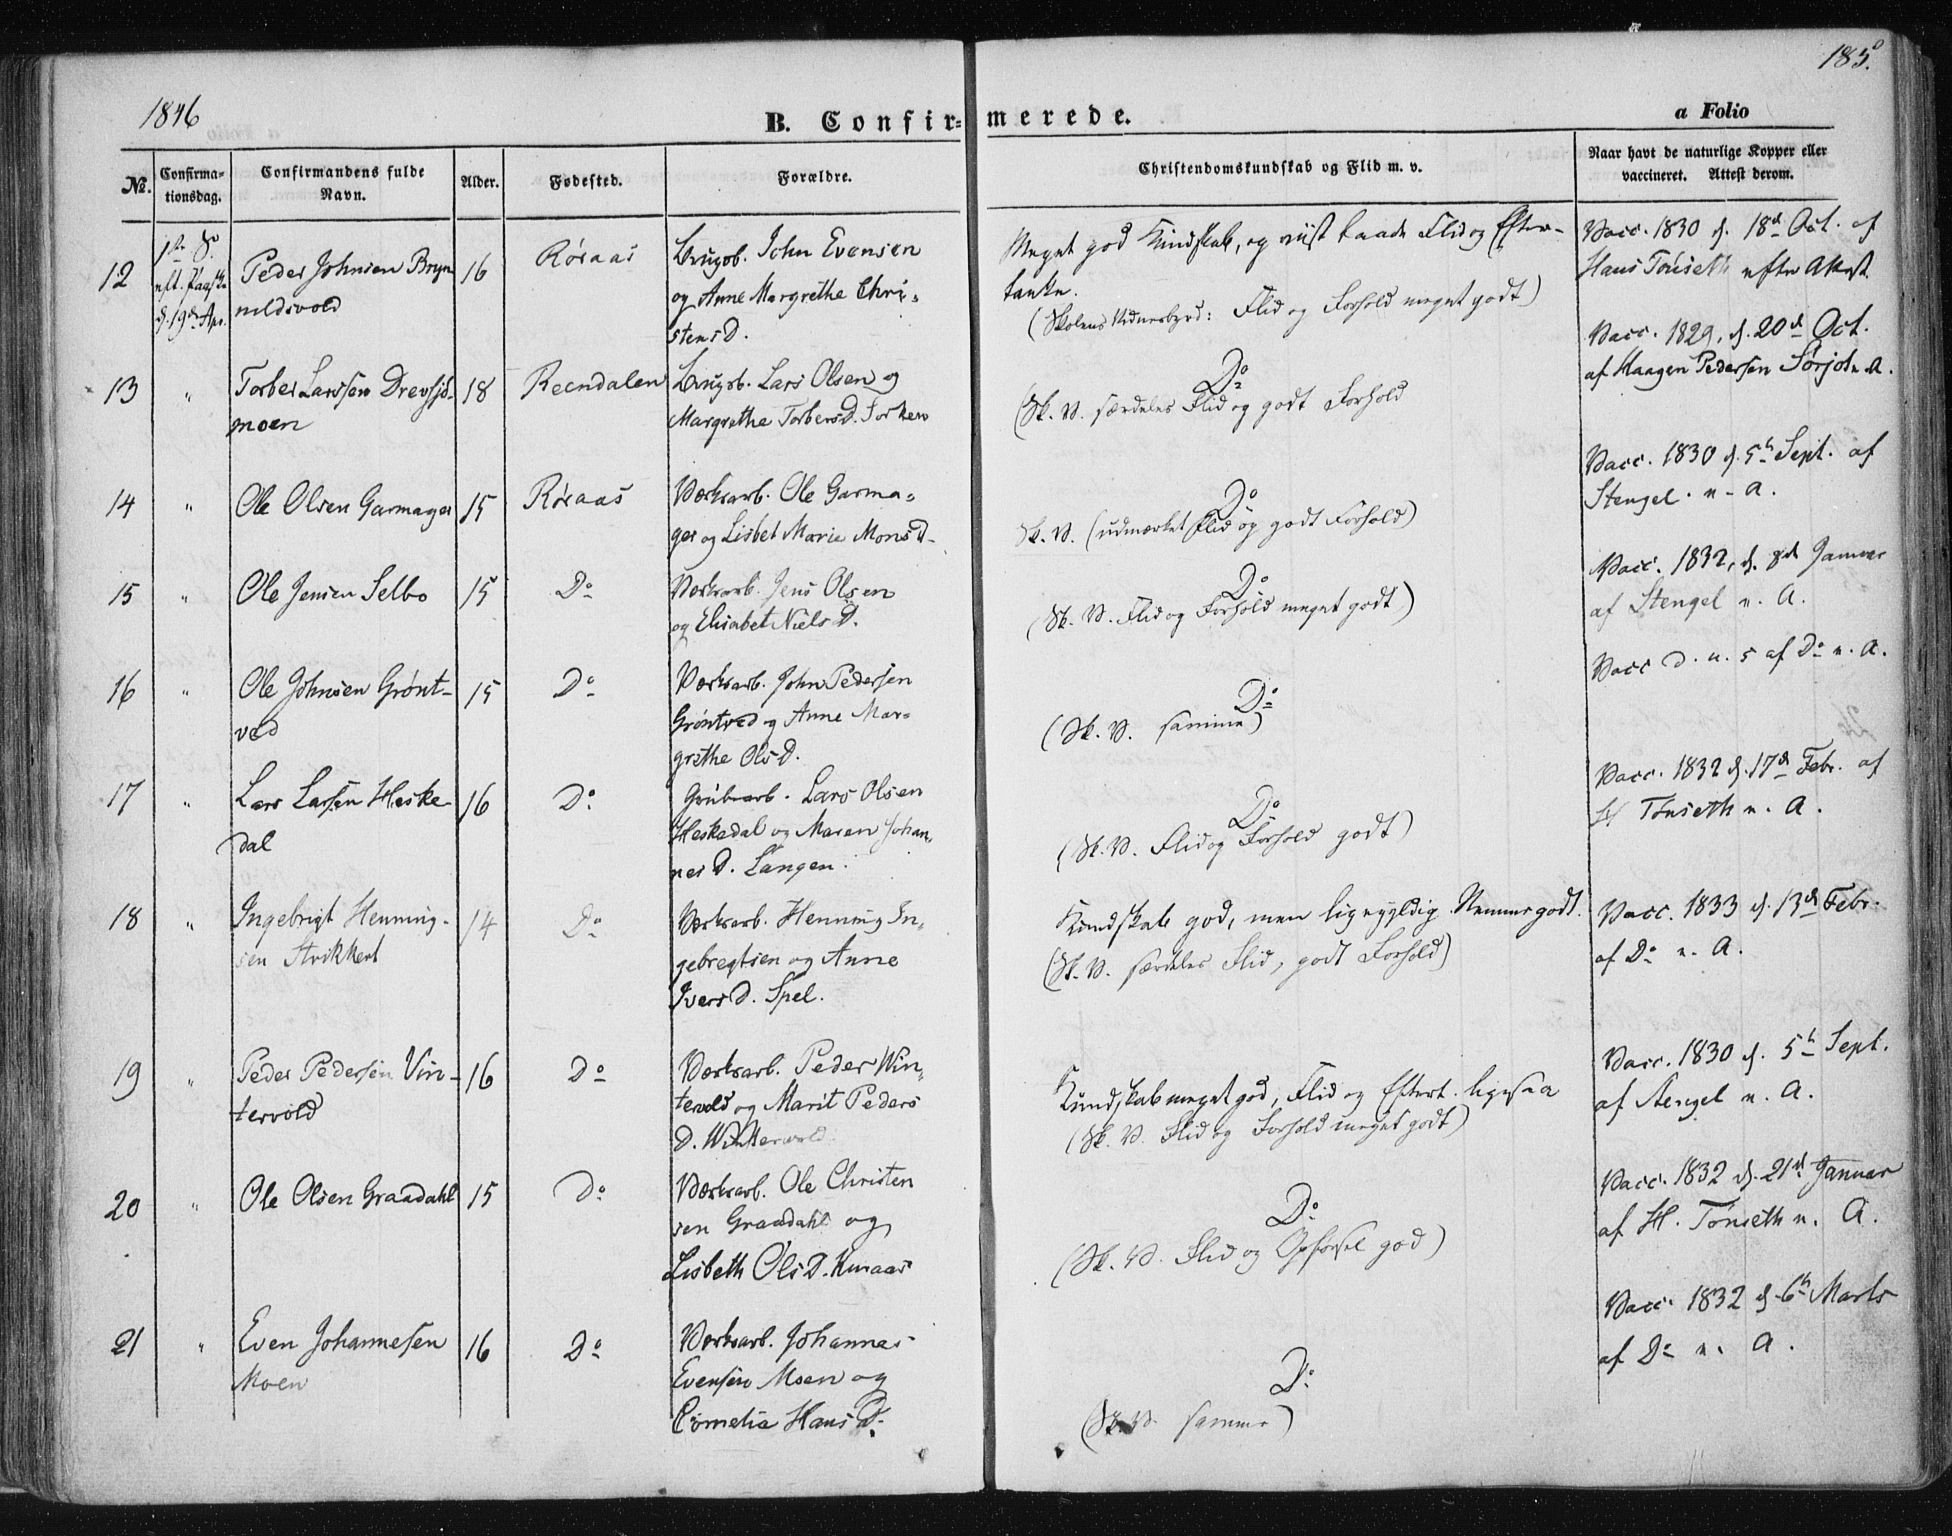 185.
1846
B. Confir=
merede.
a Folio
No. Confirma=tionsdag. Confirmandens fulde Navn. Alder. Fødested. Forældre. Christendomskundskab og Flid m. v. Naar havt de naturlige Kopper eller vaccineret. Attest derom.
12
1ste S.
eft. Paaske
d. 19de Apr.
Peder Johnsen Bryn
nildsvold
16
Røraas
Brugsb. John Evensen
og Anne Margrethe Chri=
stensD.
Meget god Kundskab, og viist baade Flid og Efter=
tanke.
(Skolens Vidnesbyrd: Flid og Forhold meget godt)
Vacc. 1830 d. 18d Oct. af
Hans Tønseth efter Attest
13
"
Torber Larssen Drevsjø-
moen
18
Reendalen
Brugsb. Lars Olsen og
Margrethe TorbersD.
Do
(Sk. V. særdeles Flid og godt Forhold
Vacc. 1829, d. 20d Oct.
af Haagen Pedersen n. A.
14
"
Ole Olsen Garmager
15
Røraas
Værksarb. Ole Garma=
ger og Lisbet Marie MonsD.
Do
Sk. V. (udmærket Flid og godt Forhold)
Vacc. 1830 d. 5h Sept. af
Stengel. n. A.
15
"
Ole Jensen Selbo
15
Do
Værksarb. Jens Olsen
og Elisabet NielsD.
Do
(Sk. V. Flid og Forhold meget godt)
Vacc. 1832, d. 8d Januar
af Stengel n. A.
16
"
Ole Johnsen Grønt-
ved
15
Do
Værksarb. John Pedersen
Grøntved og Anne Mar=
grethe OlsD.
Do
(Sk. V. samme)
Vacc d. u. s af Do n. A.
17
"
Lars Larsen Heske-
dal
16
Do
Grubearb. Lars Olsen
Heskedal og Maren Johan=
nesD. Langen.
Do
(Sk. V. Flid og Forhold godt)
Vacc. 1832 d. 17d Febr. af
H Tønseth n. A.
18
"
Ingebrigt Henning-
sen Stikkert
14
Do
Værksarb. Henning In=
gebregtsen og Anne
IversD. Spel.
Kundskab god, men ligegyldig. Nemme godt.
(Sk. V. særdeles Flid, godt Forhold)
Vacc. 1833 d. 13d Febr.
af Do n. A.
19
"
Peder Pedersen Vin-
tervold
16
Do
Værksarb. Peder Win=
tervold og Marit Peders
D. Wintervold
Kundskab meget god, Flid og Eftert. ligesaa
(Sk. V. Flid og Forhold meget godt)
Vacc. 1830 d. 5h Sept.
af Stengel n. A.
20
"
Ole Olsen Graadahl
15
Do
Værksarb. Ole Christen
sen Graadahl og
Lisbeth OlsD. Kuraas
Do
(Sk. V. Flid og Opførsel god)
Vacc. 1832 d. 21d Januar
af H. Tønseth n. A.
21
"
Even Johannesen
Moen
16
Do
Værksarb. Johannes
Evensen Moen og
Cornelia HansD.
Do
(Sk. V. samme)
Vacc. 1832 d. 6h Marts
af Do n. A.